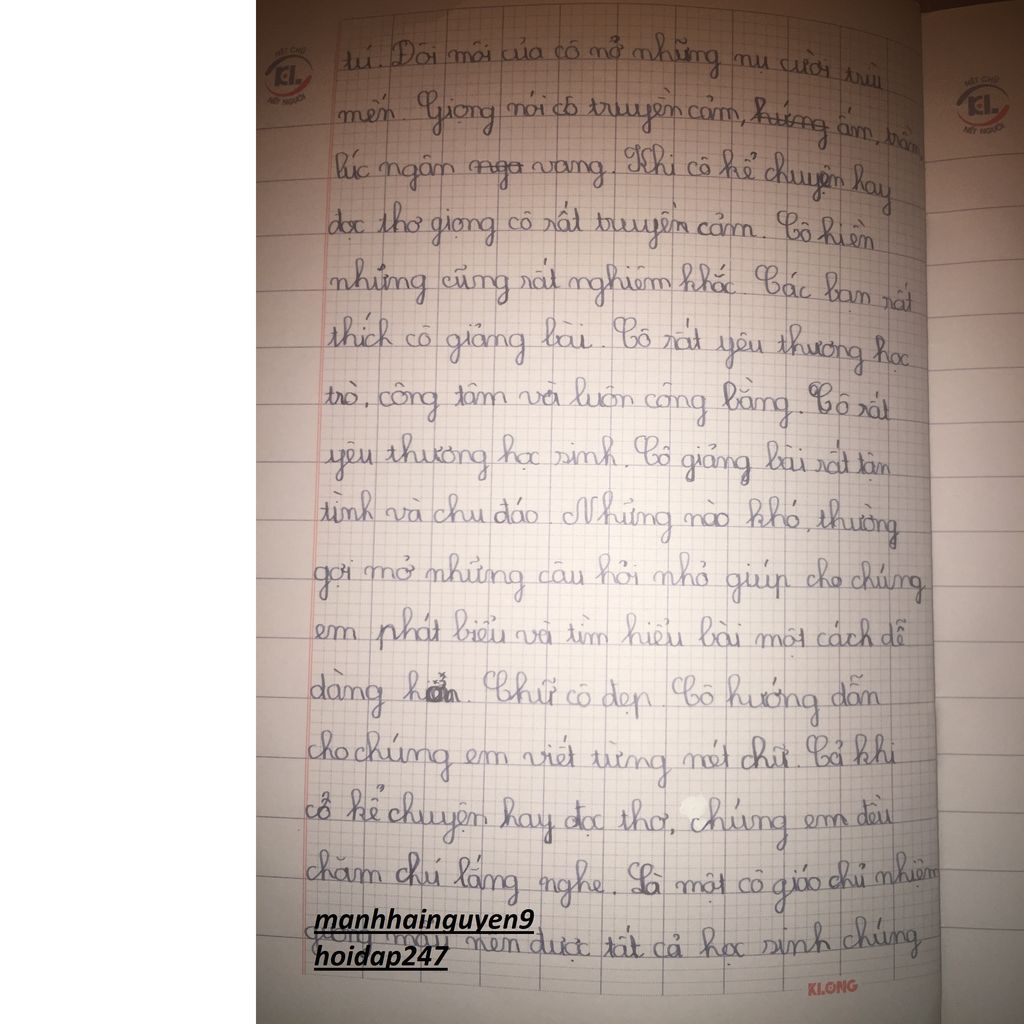 tú. Đôi môi của cô nở những nụ cười trìu
mến. Giọng nói cô truyền cảm, ấm, trầm
lúc ngân vang. Khi cô kể chuyện hay
đọc thơ giọng cô rất truyền cảm. Cô hiền
nhưng cũng rất nghiêm khắc. Các bạn rất
thích cô giảng bài. Cô rất yêu thương học
trò, công tâm và luôn công bằng. Cô rất
yêu thương học sinh. Cô giảng bài rất tận
tình và chu đáo. Những nào khó, thường
gợi mở những câu hỏi nhỏ giúp cho chúng
em phát biểu và tìm hiểu bài một cách dễ
dàng hơn. Chữ cô đẹp. Cô hướng dẫn
cho chúng em viết từng nét chữ. Cả khi
cô kể chuyện hay đọc thơ, chúng em đều
chăm chú lắng nghe. Là một cô giáo chủ nhiệm
gương mẫu nem được tất cả học sinh chúng
manhhainguyen9
hoidap247
KLONG
NÉT CHỮ
KL
NẾT NGƯỜI
NÉT CHỮ
KL
NẾT NGƯỜI